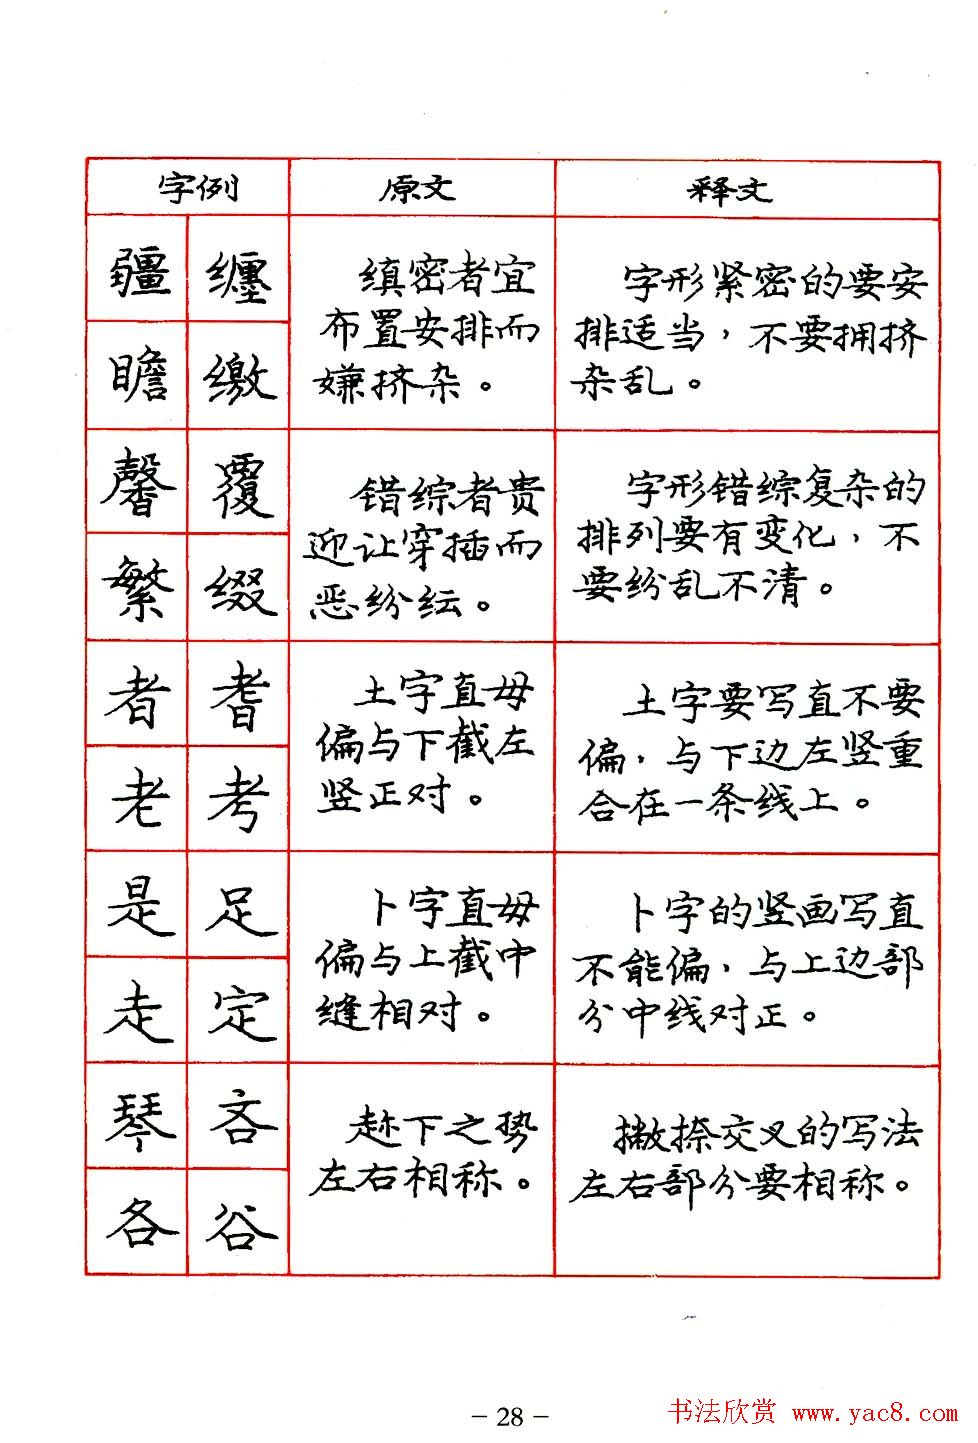 字例 原文 释文
疆 缠
瞻 缴
缜密者宜
布置安排而
嫌挤杂。
字形紧密的要安
排适当，不要拥挤
杂乱。
馨 覆
繁 缀
错综者贵
迎让穿插而
恶纷纭。
字形错综复杂的
排列要有变化，不
要纷乱不清。
者 耆
老 考
土字直毋
偏与下截左
竖正对。
土字要写直不要
偏，与下边左竖重
合在一条线上。
是 足
走 定
卜字直毋
偏与上截中
缝相对。
卜字的竖画写直
不能偏，与上边部
分中线对正。
琴 吝
各 谷
趂下之势
左右相称。
撇捺交叉的写法
左右部分要相称。
- 28 -
书法欣赏 www.yac8.com